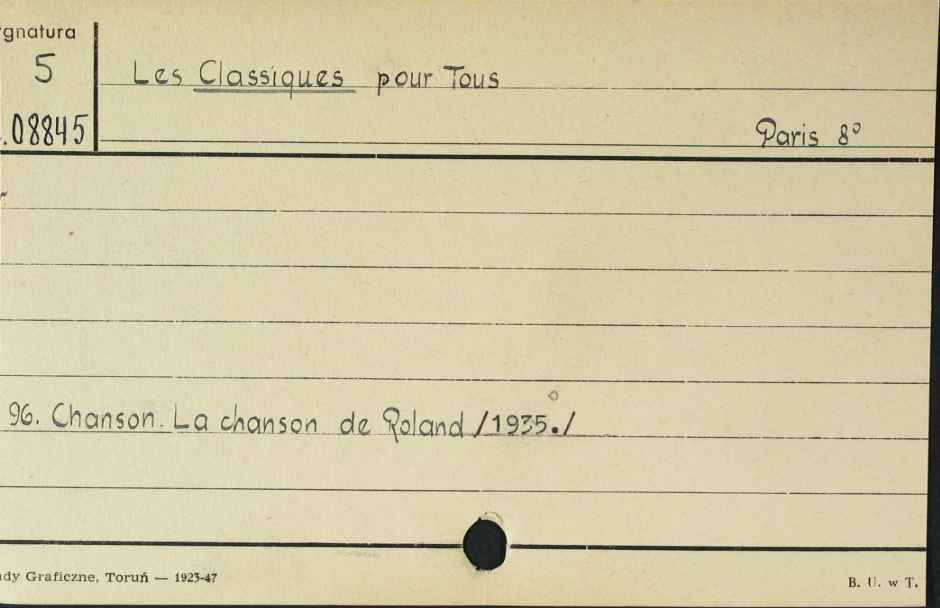 ygnatura
5
Les Classiques pour Tous
.08845
Paris 8°
96. Chanson. La chanson de Roland /1935./
ady Graficzne, Toruń — 1923-47
B. U. w T.